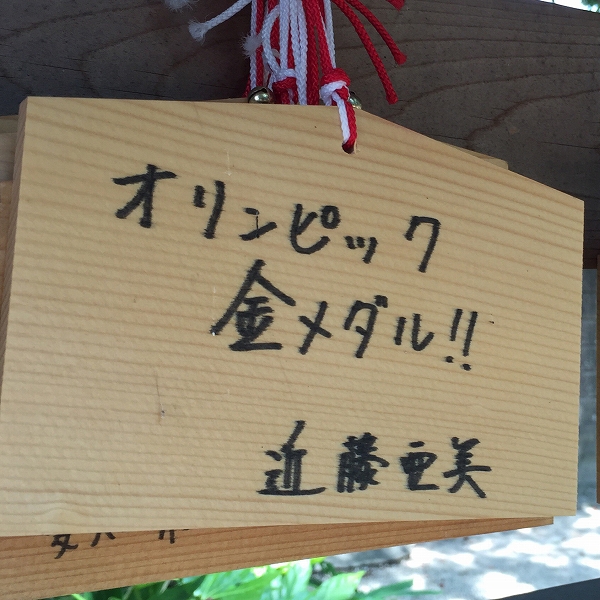 オリンピック
金メダル!!
近藤亜美